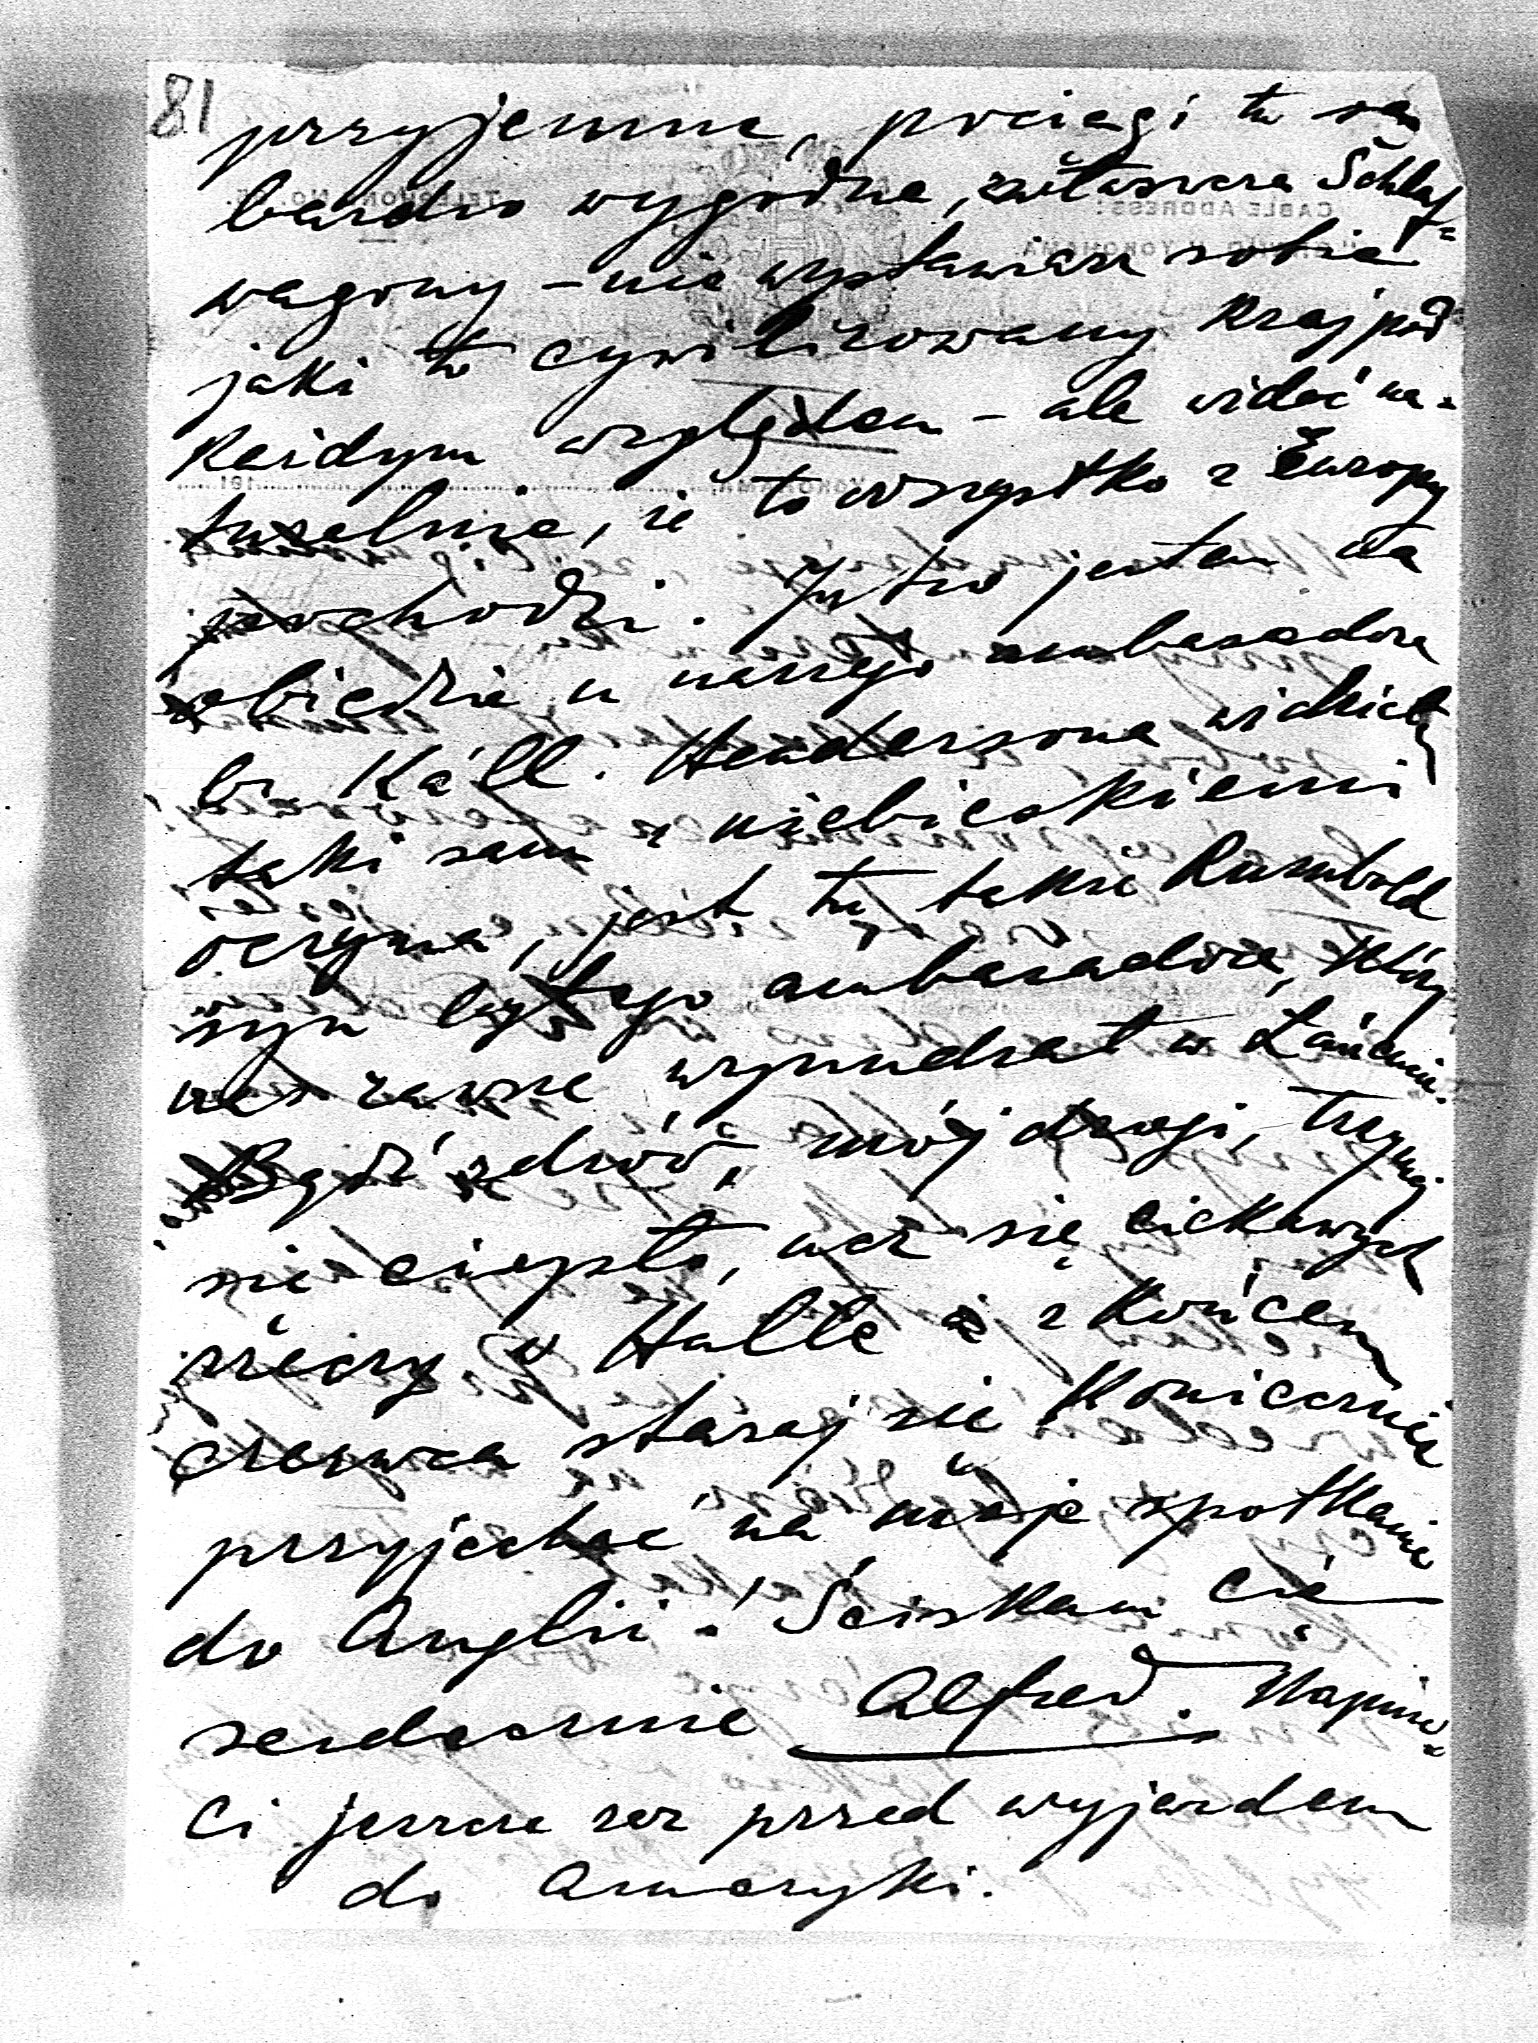 81
przyjemne, pociągi tu są
bardzo wygodne, zwłaszcza Schlaf=
wagony – nie wystawiasz sobie
jaki to cywilizowany kraj pod
każdym względem – ale widać na=
turalnie, że to wszystko z Europy
pochodzi. Jutro jestem na
obiedzie u naszego ambasadora
br Káll. Hendersona widział
taki sam z niebieskiemi
oczyma, jest tu także Rumbold
syn byłego ambasadora, który
nas zawsze wypudrał w Łańcucie.
Bądź zdrów, mój drogi, trzymaj
się ciepło, ucz się ciekawych
rzeczy w Halle i z końcem
czerwca staraj się koniecznie
przyjechać na moje spotkanie
do Anglii! Ściskam Cię
serdecznie Alfred. Napisz=
Ci jeszcze raz przed wyjazdem
do Ameryki.
CABLE ADDRESS:
TELEPHONE No.
YOKOHAMA
191